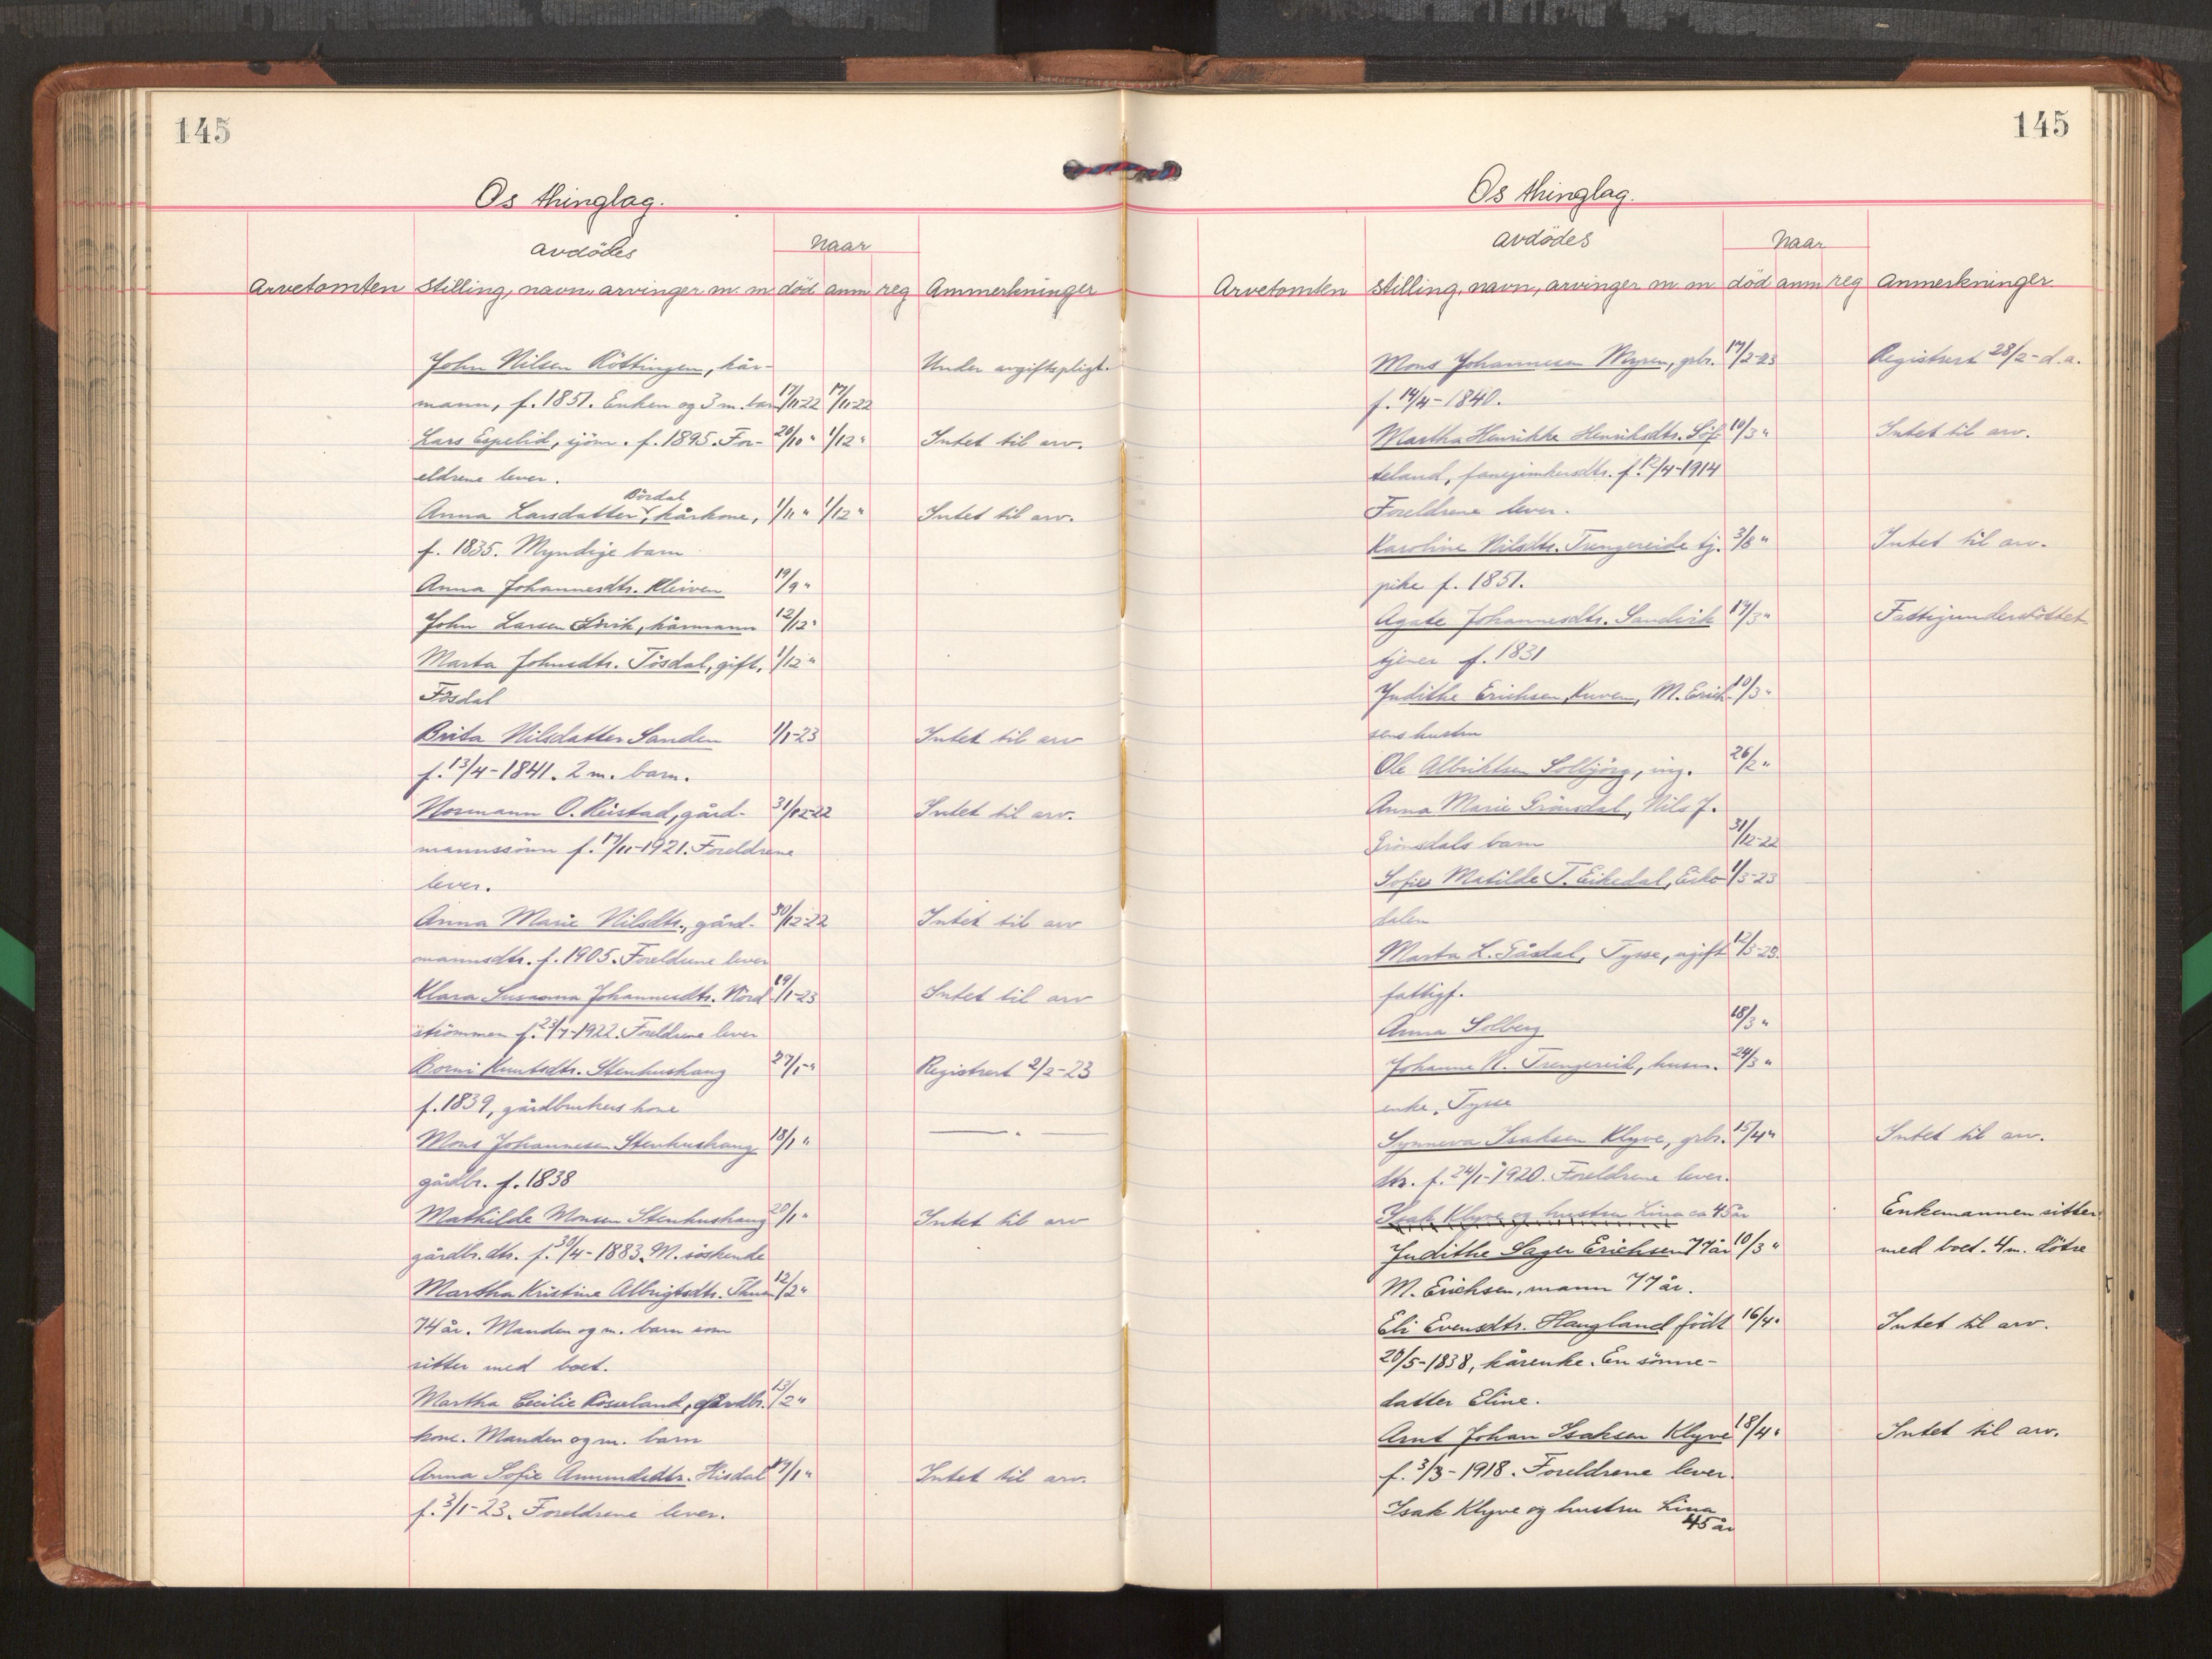 145
Os thinglag.
avdödes
Naar
Arvetomten stilling, navn, arvinger m. m død anm reg Anmerkninger
John Nilsen Röttingen, kår- Under avgiftspligt.
mann, f. 1851. Enken og 3 m. barn 17/11-22 17/11-22
Lars Espelid, sjöm. f. 1895. For- 20/10 " 1/12 " Intet til arv.
eldrene lever.
Bördal
Anna Larsdatter, kårkone, 1/11 " 1/12 " Intet til arv.
f. 1835. Myndige barn
Anna Johannesdtr. Kleiven 19/9 "
John Larsen kårmann 12/12 "
Marta Johnsdtr. Tösdal, gift, 1/12 "
Tösdal
Brita Nilsdatter Sanden 1/1-23 Intet til arv
f. 13/4-1841. 2 m. barn.
Normann O. Reistad, gård- 31/12-22 Intet til arv.
mannssönn f. 17/11-1921. Foreldrene
lever.
Anna Marie Nilsdtr., gård- 30/12-22 Intet til arv
mannsdtr. f. 1905. Foreldrene lever
Klara Susanna Johannesdtr. Nord 19/1-23 Intet til arv
strömmen f. 23/7-1922. Foreldrene lever
Borni Knutsdtr. Stenhushaug 27/1-" Registrert 2/2-23
f. 1839, gårdbrukers kone
Mons Johannesen Stenhushaug 18/1 " — " —
gårdbr. f. 1838
Mathilde Monsen Stenhushaug 20/1 " Intet til arv
gårdbr. dtr. f. 30/4-1883. M. söskende
Martha Kristine Albrigtsdtr. Thuen 12/2 "
74 år. Manden og m. barn som
sitter med boet.
Martha Cecilie Röseland, gårdbr. 13/2 "
kone. Manden og m. barn
Anna Sofie Amundsdtr. Hisdal 17/1 " Intet til arv.
f. 3/1-23. Foreldrene lever.
145
Os thinglag.
avdödes
Naar
Arvetomten stilling, navn, arvinger m m död anm reg Anmerkninger
Mons Johannesen Myren, gbr. 17/2-23 Registrert 28/2- d.a.
f. 14/4-1840.
Martha Henrikke Henriksdtr. Söf- 10/3 " Intet til arv.
teland, fanejunkersdtr. f. 12/4-1914
Foreldrene lever.
Karoline Nilsdtr. Trengereide tj. 3/3 " Intet til arv.
pike f. 1851.
Agate Johannesdtr. Sandvik 17/3 " Fattigunderstöttet
tjener f. 1831
Judithe Erichsen, Kuven, M. Erich- 10/3 "
sens hustru
Ole Albriktsen Solbjörg, ung. 26/2 "
Anna Marie Grönsdal, Nils J.
Grönsdals barn 31/12-22
Sofie Matilde T. Eikedal, Eike- 1/3-23
dalen
Marta L. Gåsdal, Tysse, ugift 12/3-23.
fattigf.
Anna Solberg 18/3 "
Johanne N. Trengereid, husm. 24/3 "
enke, Tysse
Synneva Isaksen Klyve, gbr. 15/4 " Intet til arv.
dtr. f. 24/1-1920. Foreldrene lever.
Isak Klyve og hustru Lina ca 45 år Enkemannen sitter
Judithe Sager Erichsen 77 år 10/3 " med boet. 4 m. dötre
M. Erichsen, mann 77 år.
Eli Evensdtr. Haugland födt 16/4 " Intet til arv.
20/5-1838, kårenke. En sönne-
datter Eline.
Arnt Johan Isaksen Klyve 18/4 " Intet til arv.
f. 3/3-1918. Foreldrene lever.
Isak Klyve og hustru Lina
45 år